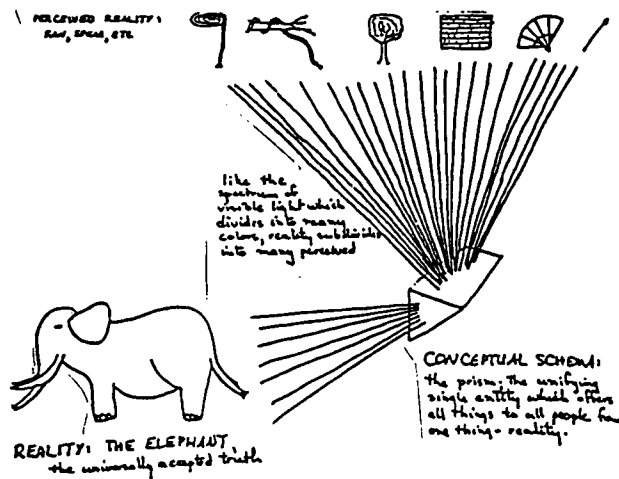 PERCEIVED REALITY:
FAN, SPEAR, ETC
like the
spectrum of
visible light which
divides into many
colors, reality subdivides
into many perceived
CONCEPTUAL SCHEMA:
the prism. The unifying
single entity which offers
all things to all people from
one thing - reality.
REALITY: THE ELEPHANT
the universally accepted truth